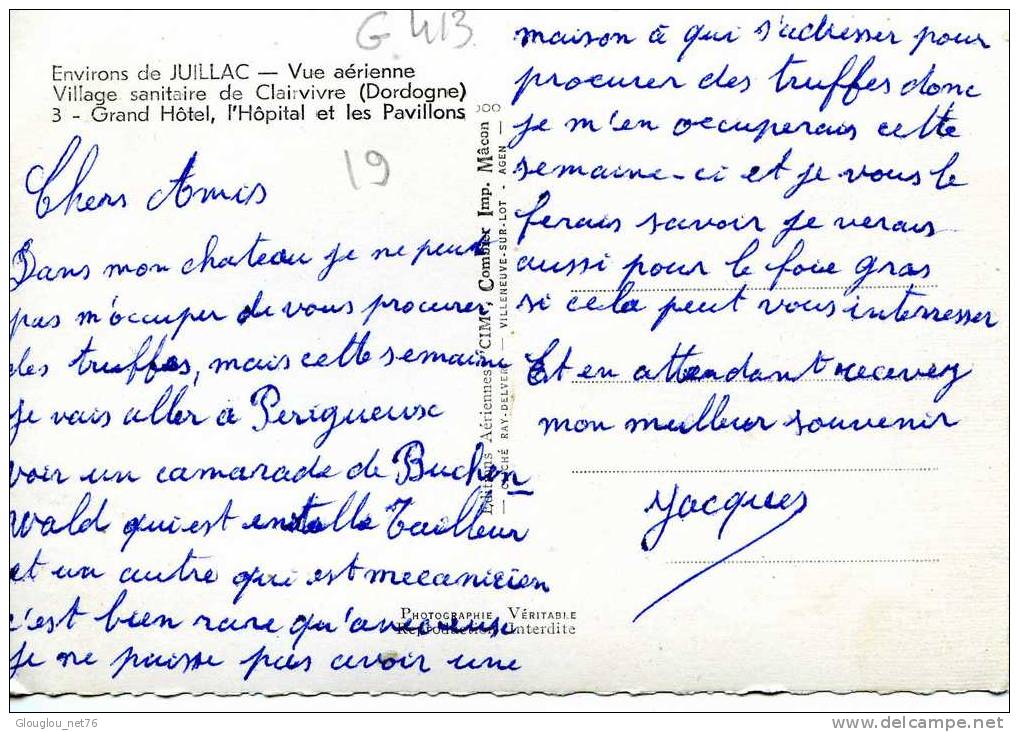 G 413
Environs de JUILLAC — Vue aérienne
Village sanitaire de Clairvivre (Dordogne)
3 - Grand Hôtel, l'Hôpital et les Pavillons
19
Chers Amis
Dans mon chateau je ne peux
pas m'occuper de vous procurer
des truffes, mais cette semaine
je vais aller à Perigueux
voir un camarade de Buchen
wald qui est Tailleur
et un autre qui est mecanicien
c'est bien rare qu'avec eux
je ne puisse pas avoir une
maison à qui s'adresser pour
procurer des truffes donc
je m'en occuperais cette
semaine-ci et je vous le
ferais savoir je verais
aussi pour le foie gras
si cela peut vous interresser
Et en attendant recevez
mon meilleur souvenir
Jacques
Editions Aériennes "CIM", Combier Imp. Mâcon
— CLICHÉ RAY-DELVERT — VILLENEUVE-SUR-LOT - AGEN —
Photographie Véritable
Reproduction Interdite
Glouglou_net76
http://www.delcampe.net